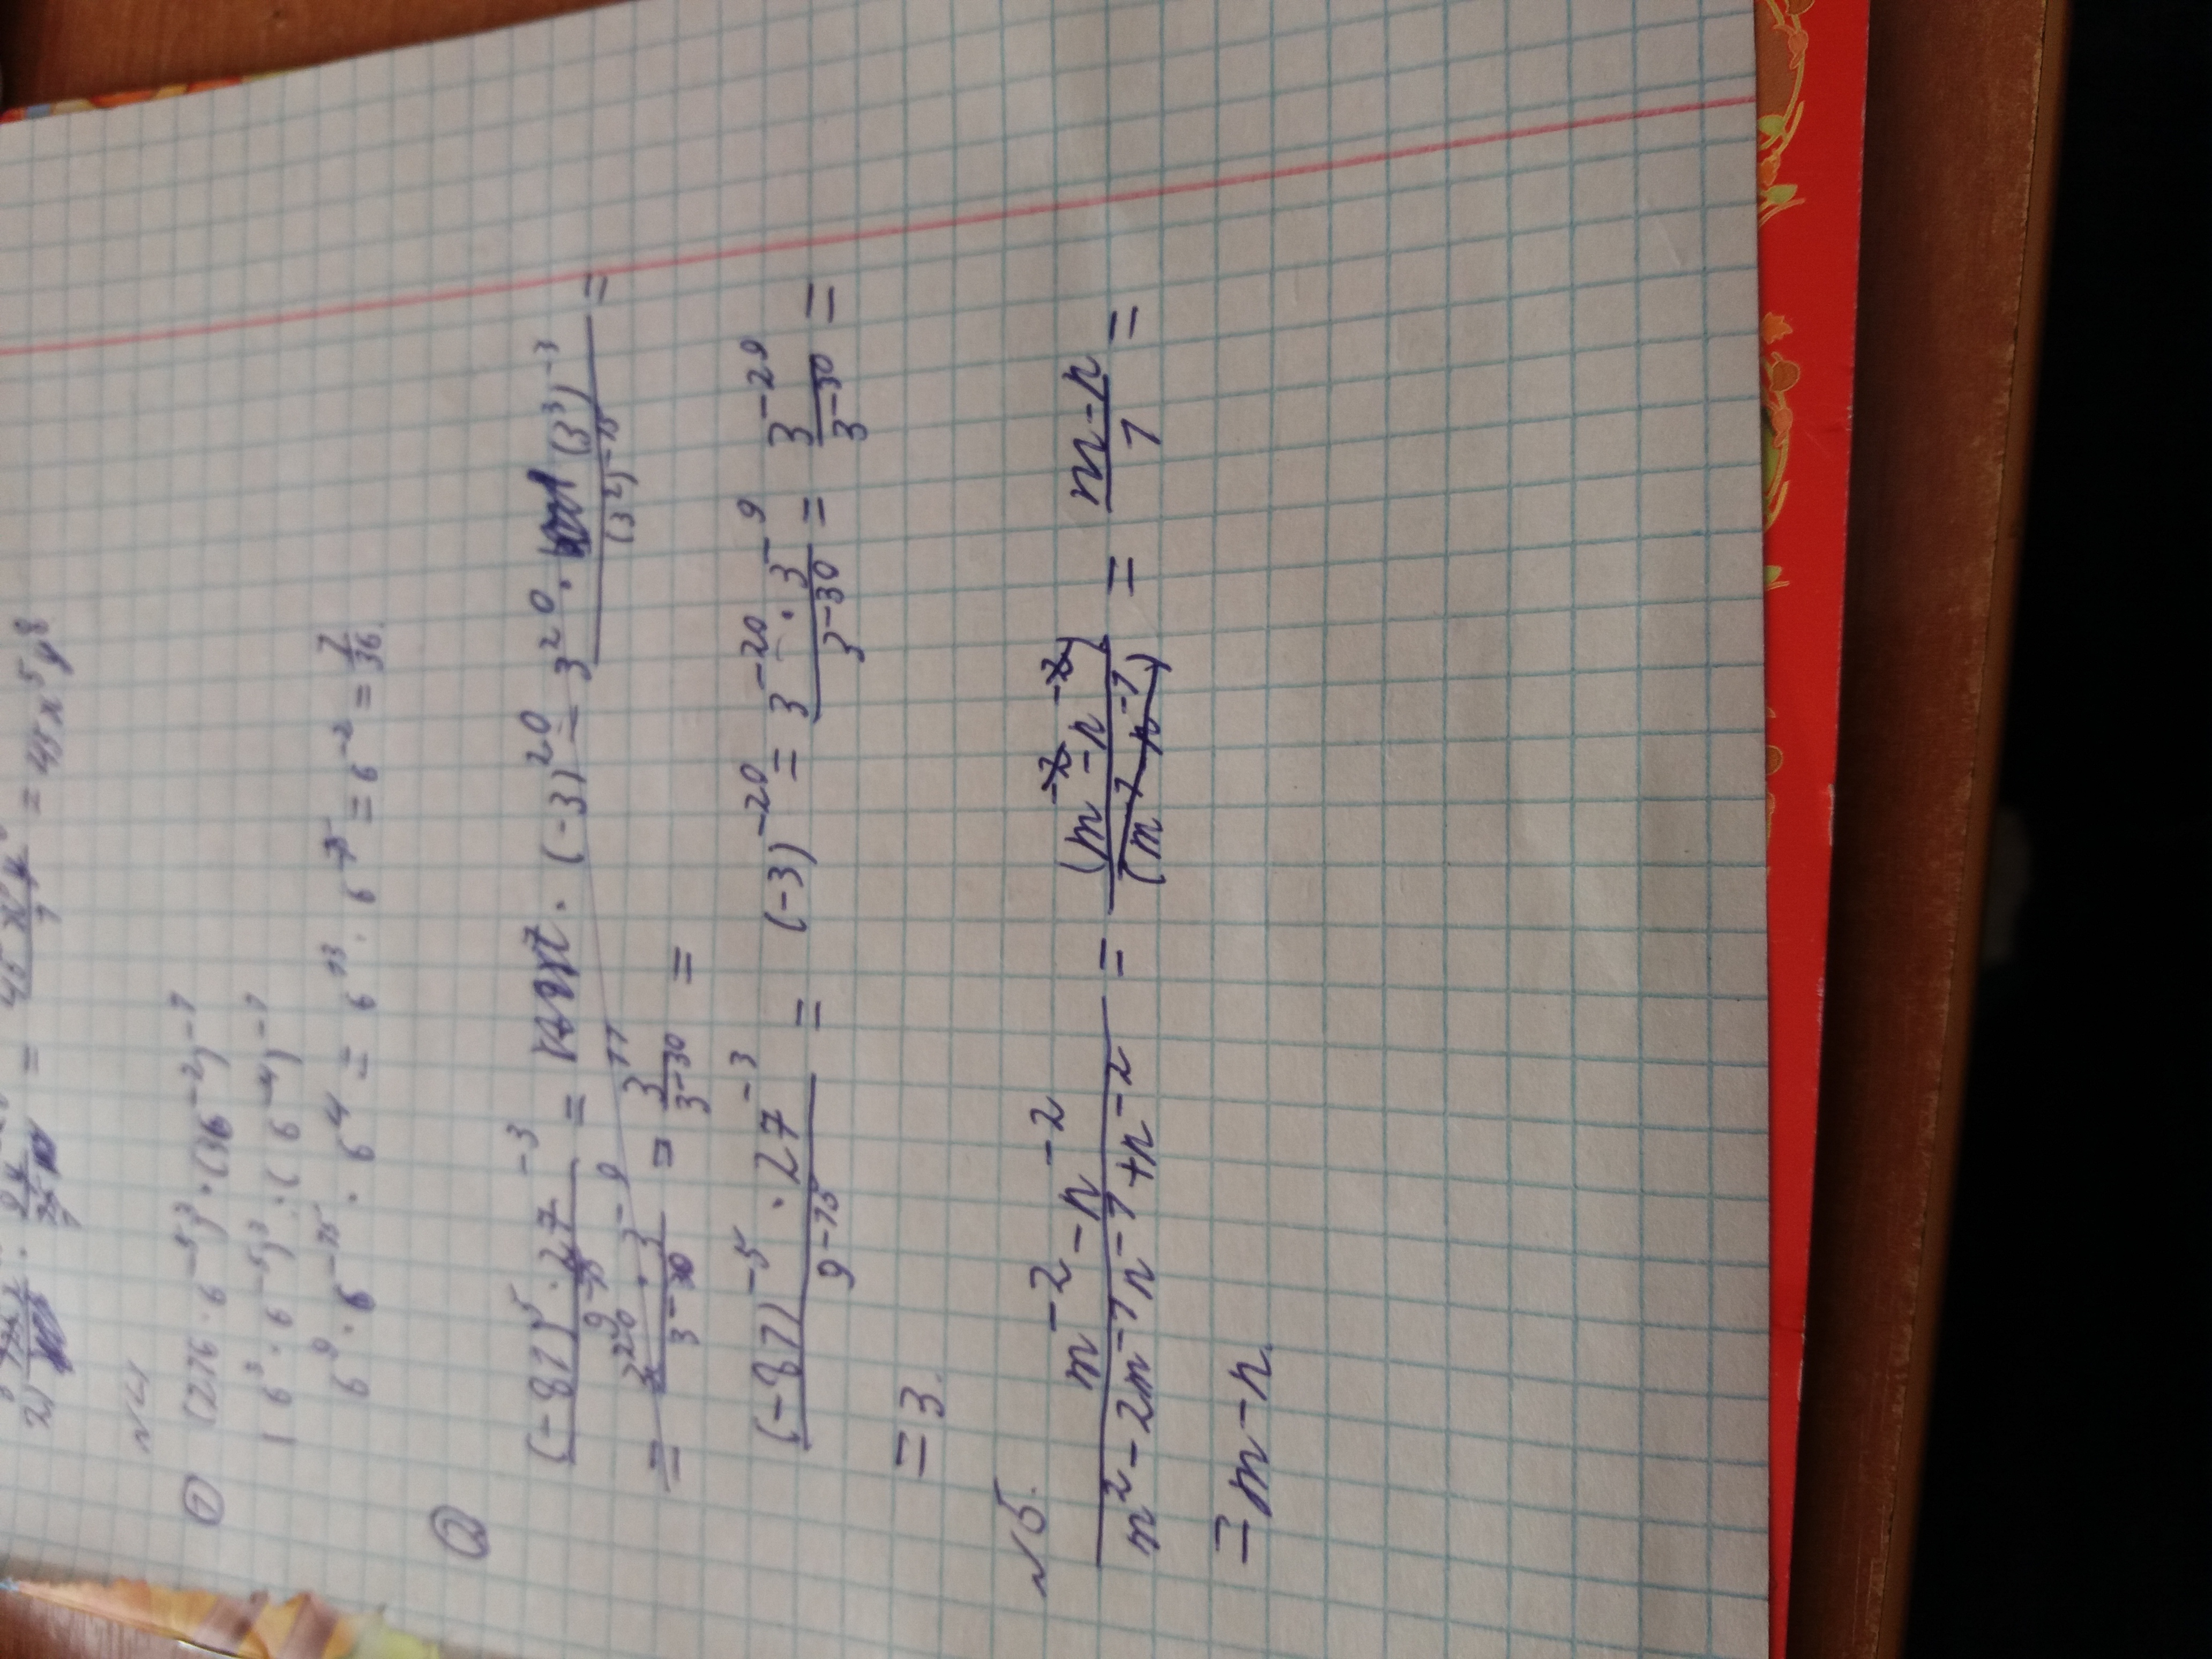 = 45x⁵y⁸
N4
① (216 · 6⁻⁵)³ · (36⁻²)⁻¹
(6³ · 6⁻⁵)³ · (6⁻⁴)⁻¹
6⁹ · 6⁻¹⁵ · 6⁴ = 6¹³ · 6⁻¹⁵ = 6⁻² = 1/36.
② (-81)⁵ · 27⁻³ / 9⁻¹⁵ = · (-3)²⁰ = 3²⁰ · (3³)⁻³ / (3²)⁻¹⁵ =
= 3²⁰ · 3⁻⁹ / 3⁻³⁰ = 3¹¹ / 3⁻³⁰ =
(-81)⁻⁵ · 27⁻³ / 9⁻¹⁵ = (-3)⁻²⁰ = 3⁻²⁰ · 3⁻⁹ / 3⁻³⁰ = 3⁻²⁹ / 3⁻³⁰ =
= 3.
N5.
m⁻² - n⁻² / m² - 2m⁻¹n⁻¹ + n⁻² = (m⁻² - n⁻²) / (m⁻¹ - n⁻¹) = m - n / 1 =
= m - n.